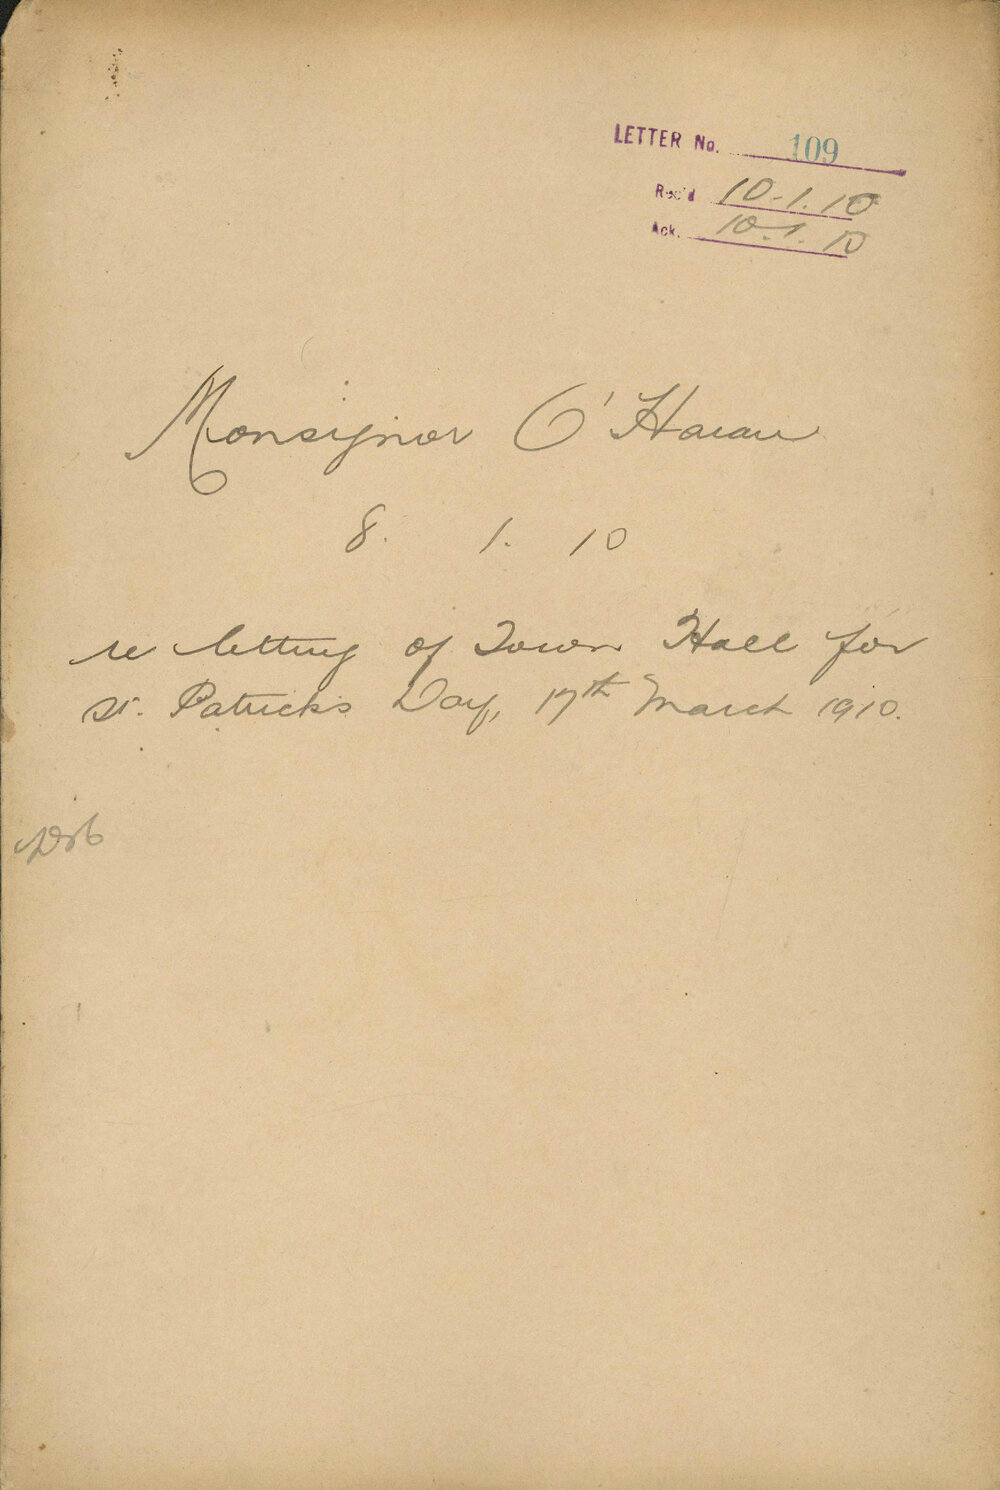 LETTER No. 109
Rec'd 10.1.10
Ack. 10.1.10
Monsignor O'Haran
8. 1. 10
re letting of Town Hall for
St. Patrick's Day, 17th March 1910.